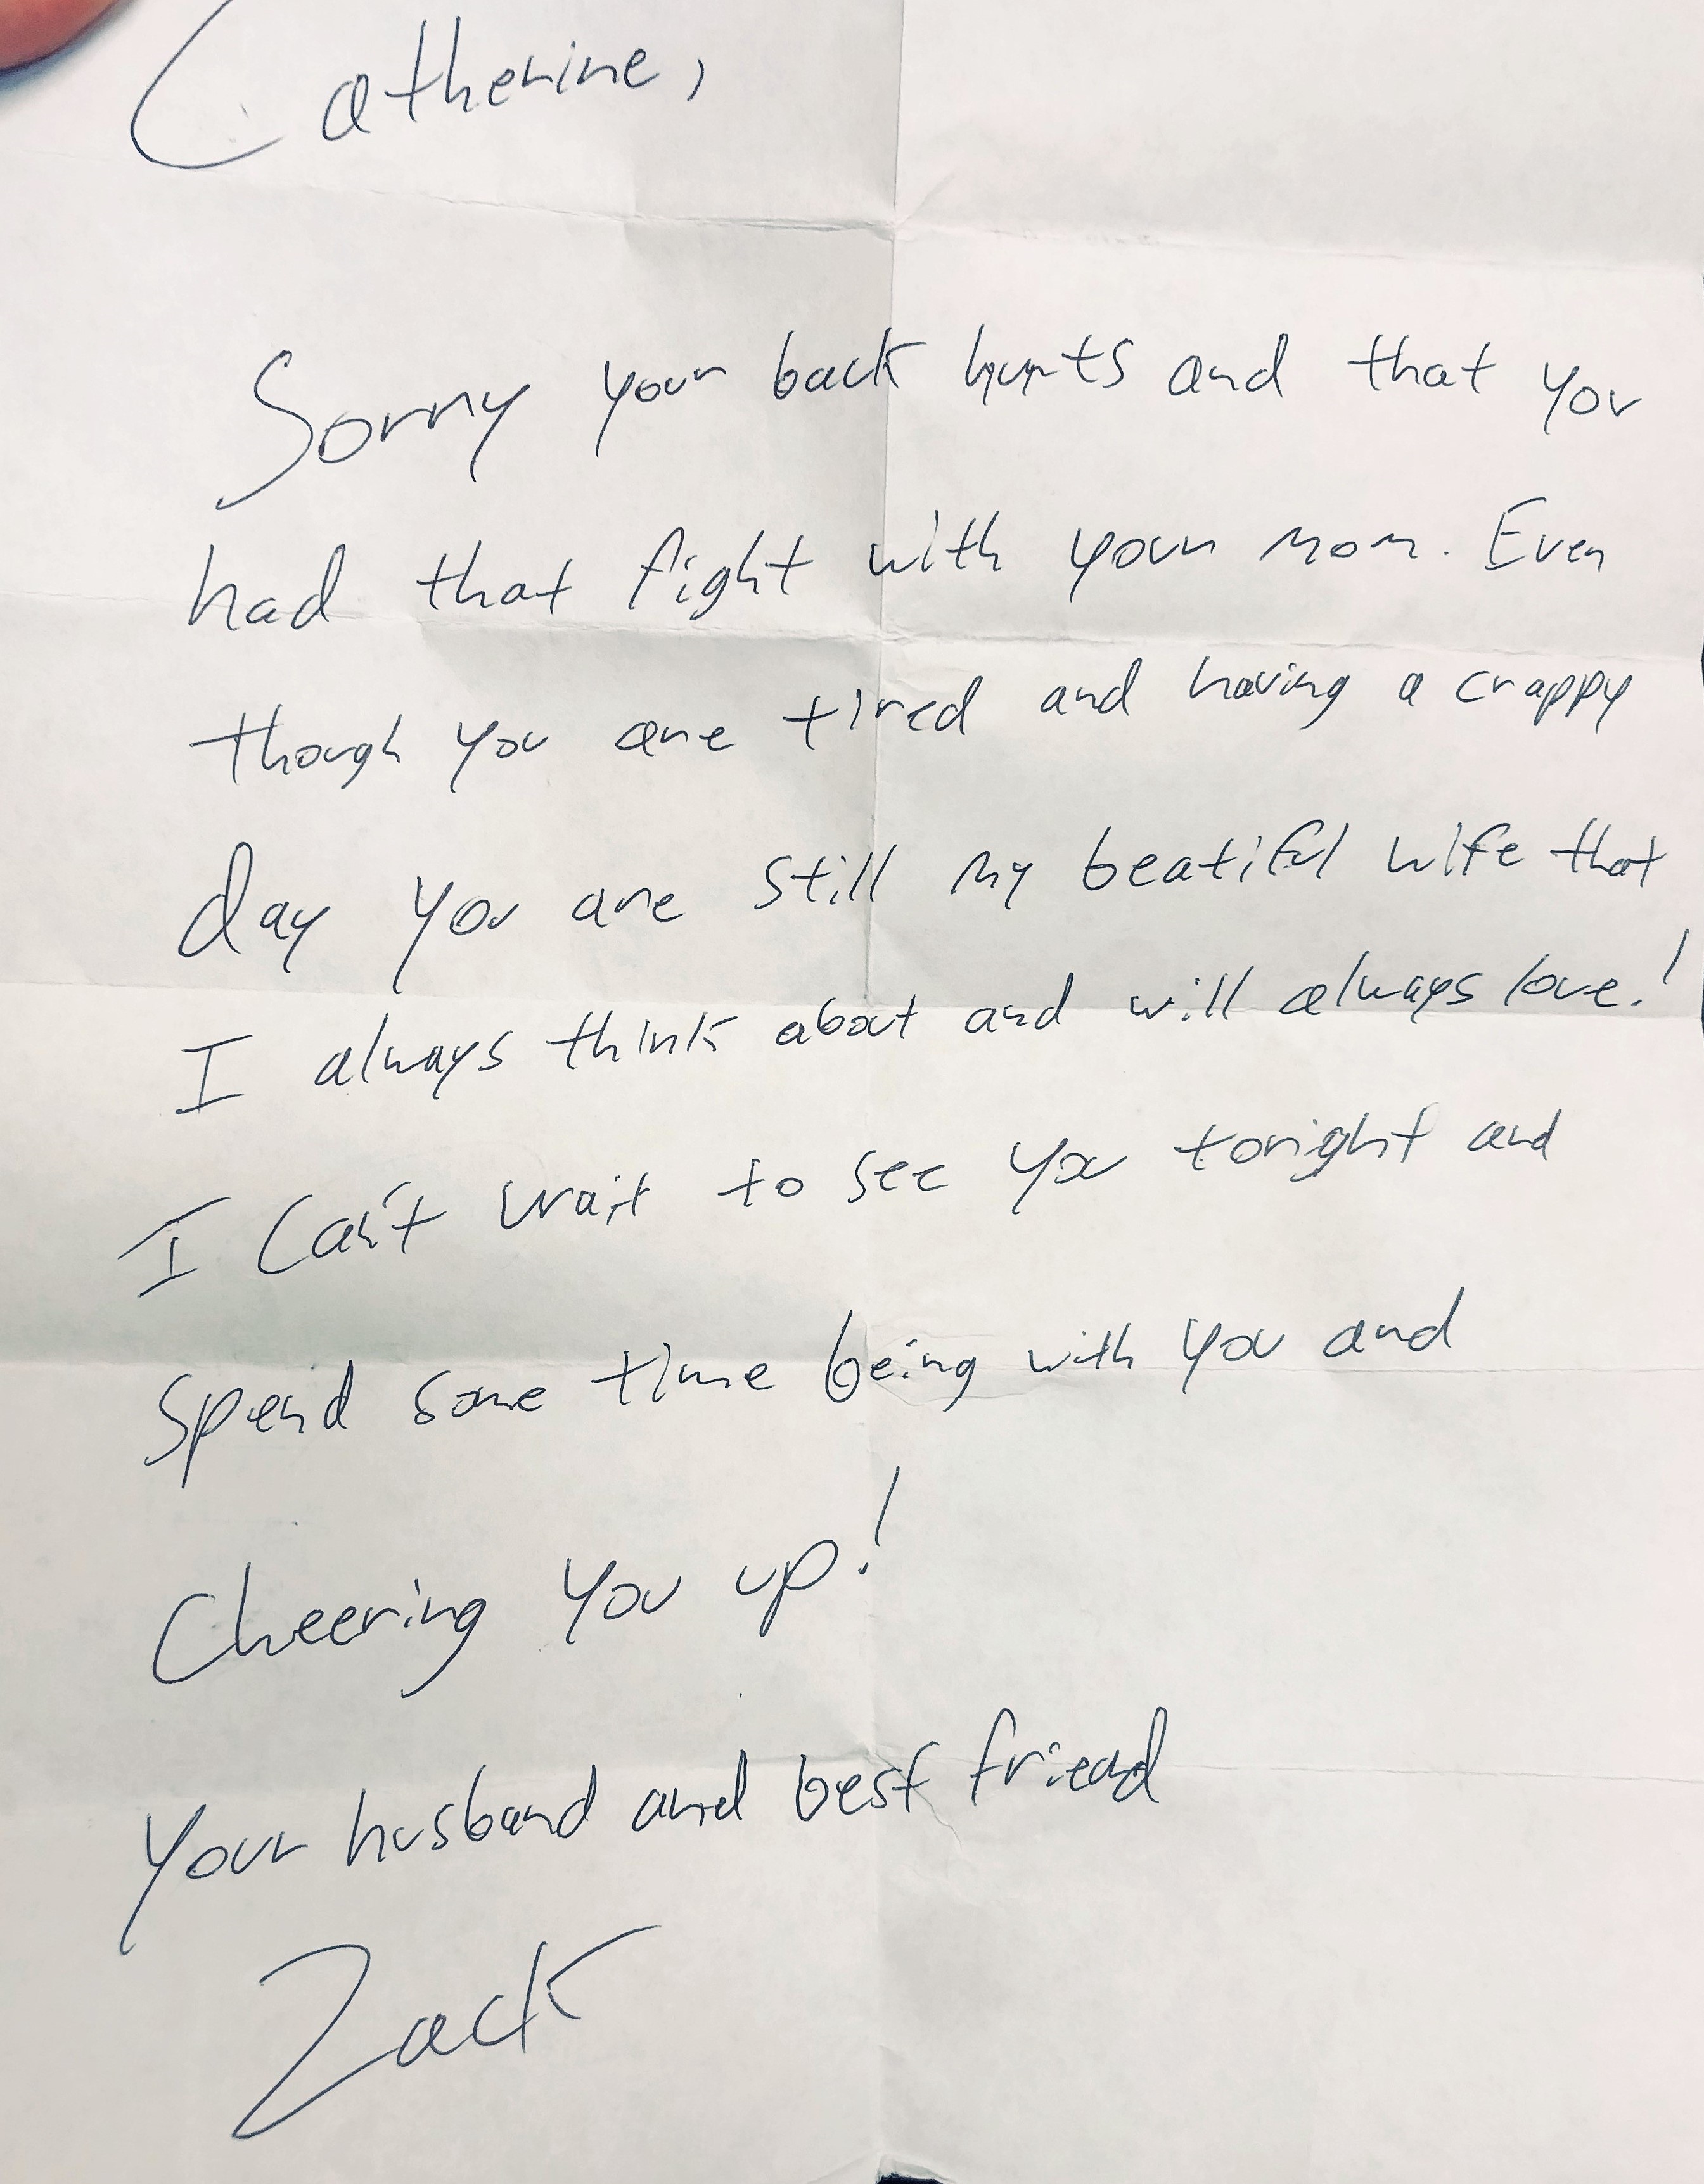 Catherine,
Sorry your back hurts and that you
had that fight with your mom. Even
though you are tired and having a crappy
day you are still my beatiful wife that
I always think about and will always love!
I can't wait to see you tonight and
spend some time being with you and
Cheering you up!
Your husband and best friend
Zack